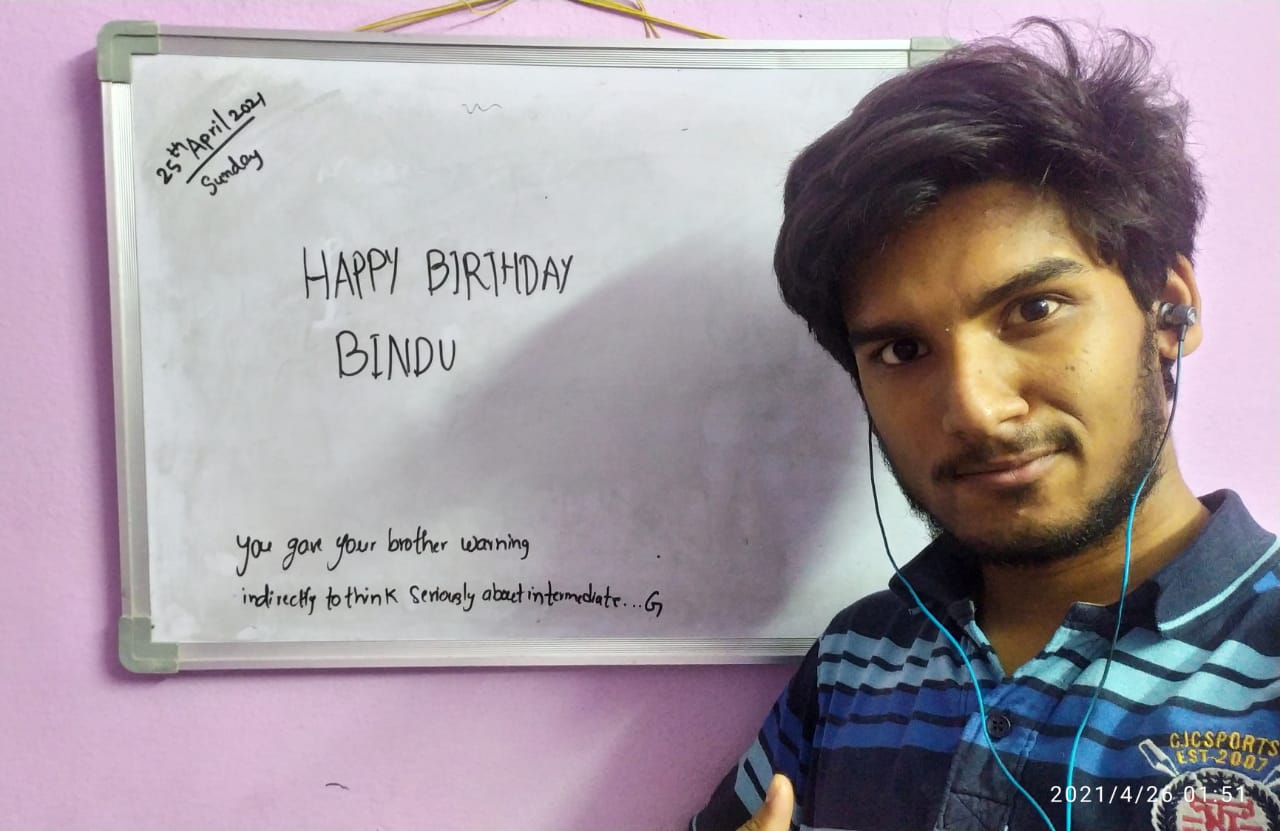 25th April 2021
Sunday
HAPPY BIRTHDAY
BINDU
You gave your brother warning
indirectly to think Seriously about intermediate...G
C.JCSPORTS
EST-2007
2021/4/26 01:51